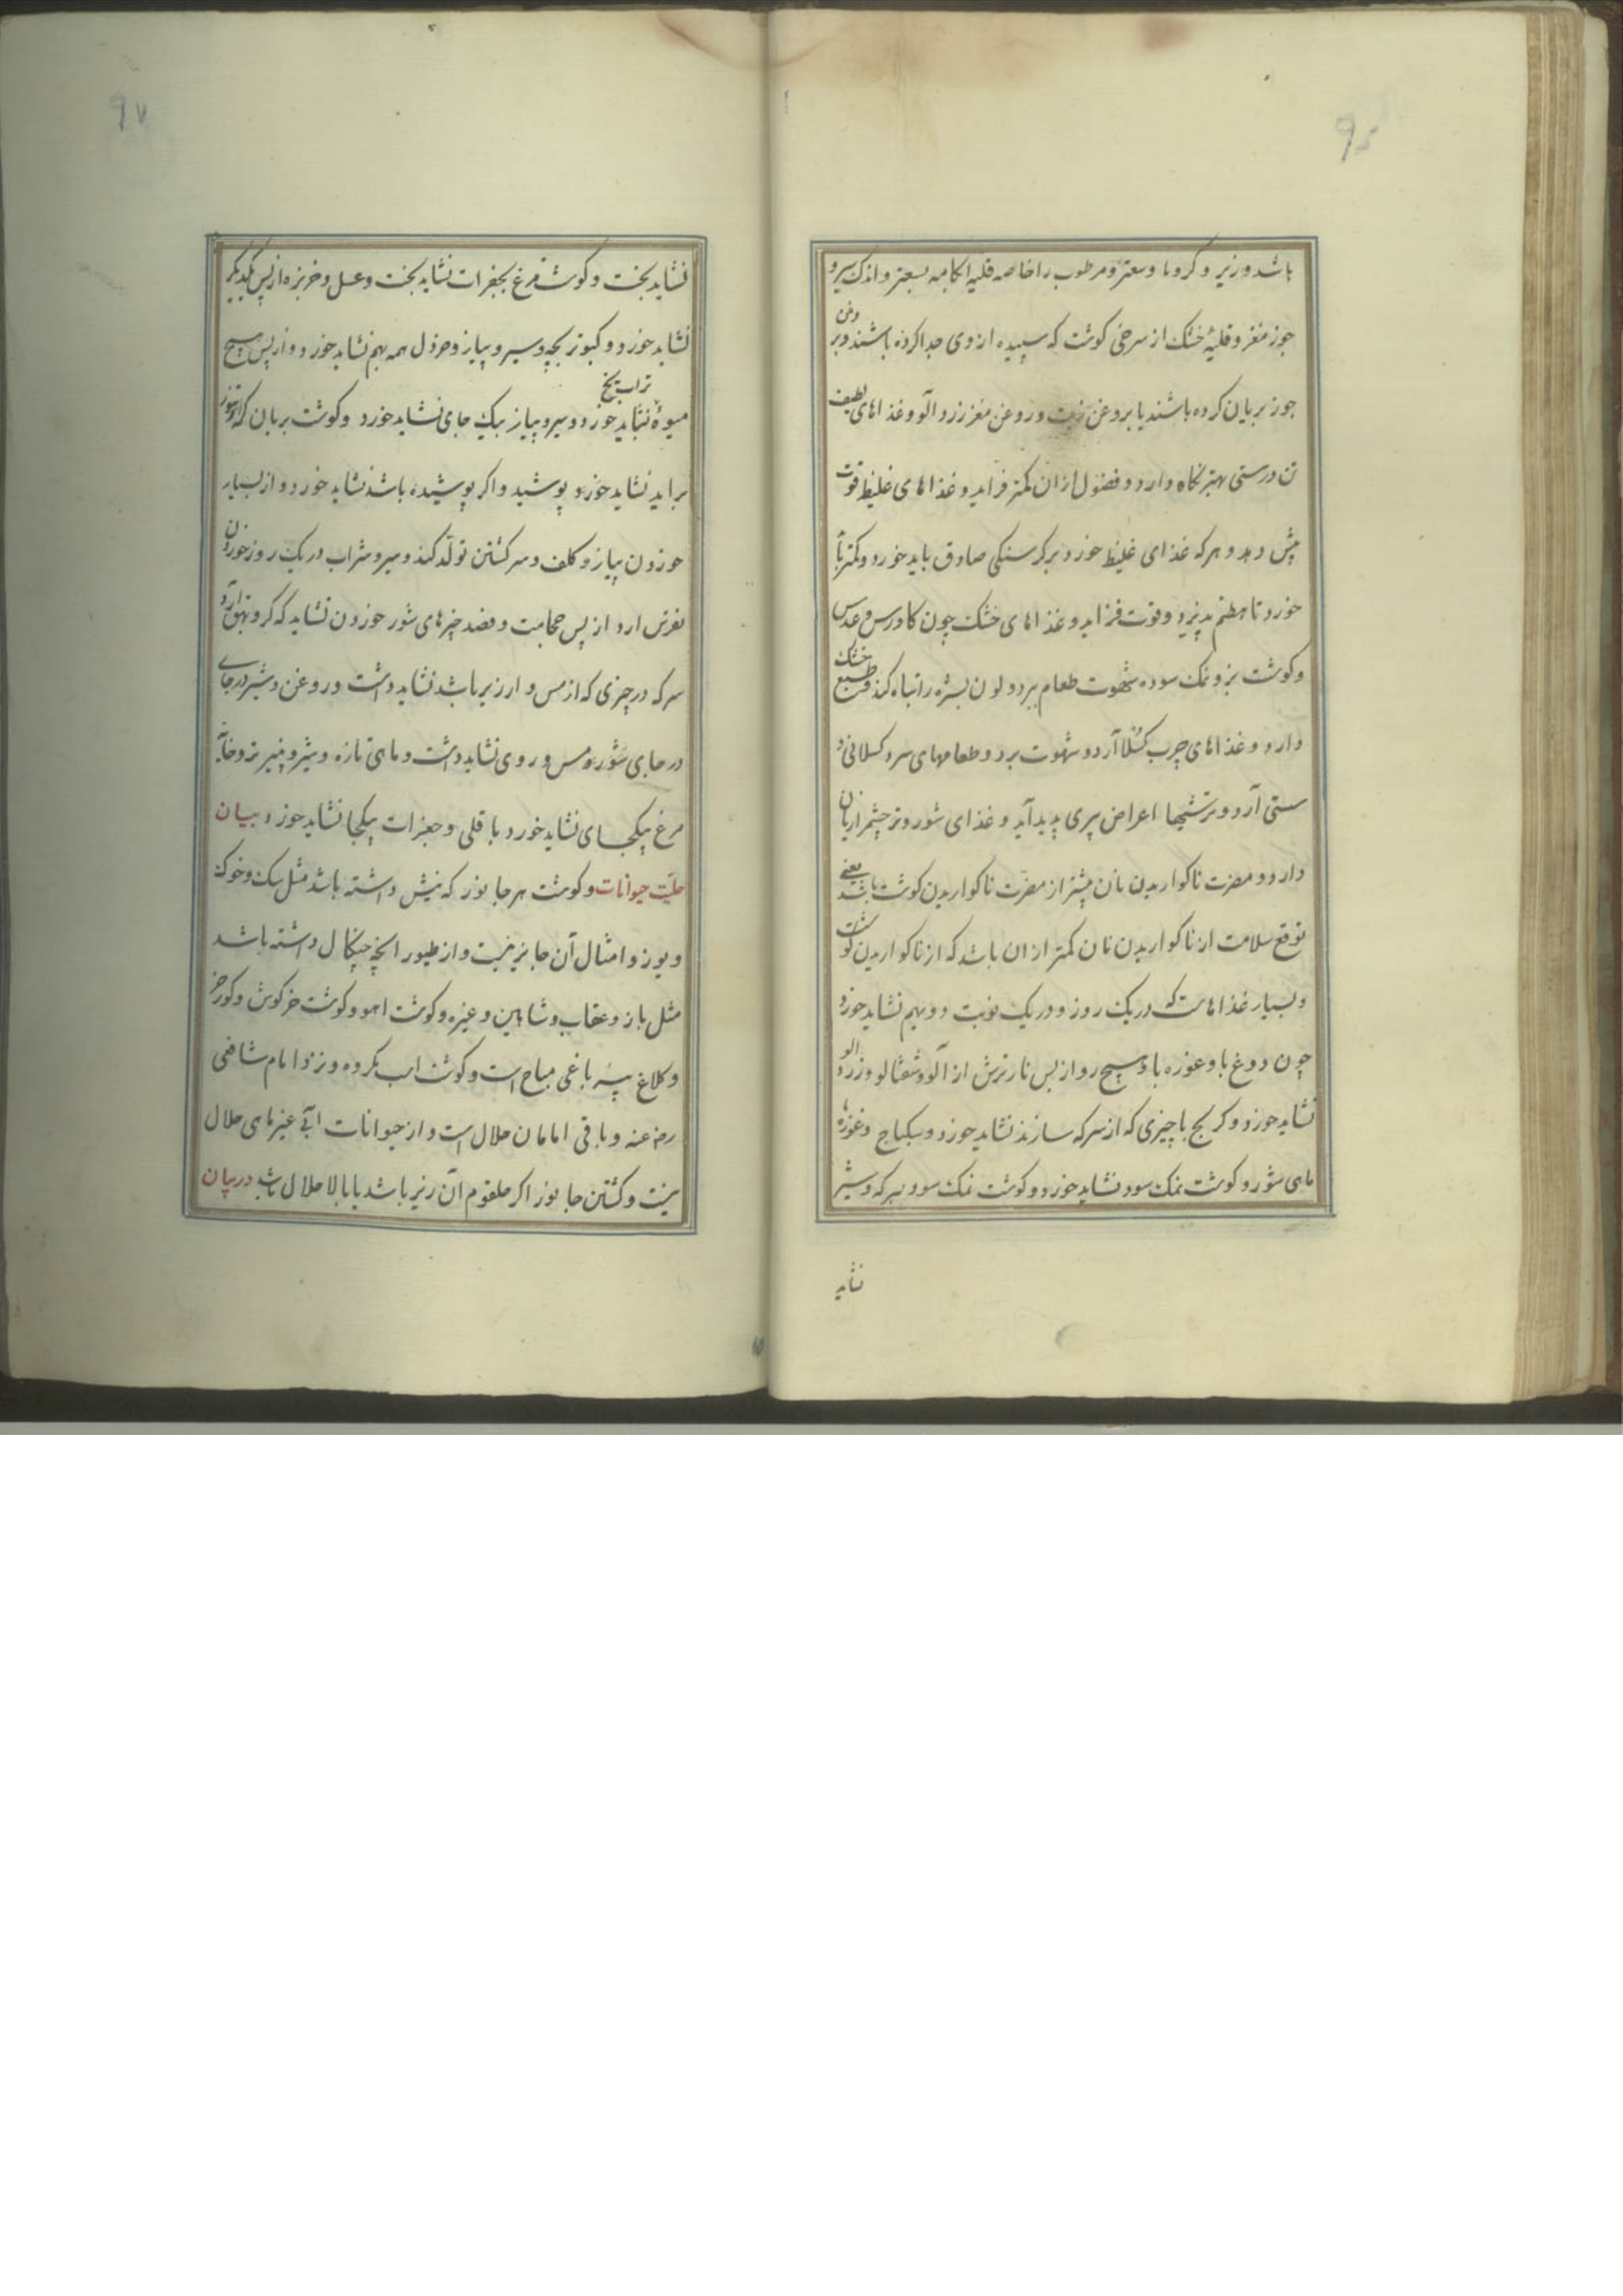 باشد و زیر و کرویا و سعتر و مرطوب را خاصه قلیه اکامه بسعتر و اندک سیر و
جوز مغز و قلیهٔ خشک از سرخی کوشت که سپیده از وی جدا کرده باشند و بروغن
جوز بریان کرده باشند یا بروغن زیت و روغن مغز زرد آلو و غذاهای لطیف
تن درستی بهتر نکاه دارد و فضول از ان کمتر فزاید و غذاهای غلیظ قوت
بیش دهد و هر که غذای غلیظ خورد بر کرسنکی صادق باید خورد و کمتر باید
خورد تا هضم پذیرد و قوت فزاید و غذاهای خشک چون کاورس و عدس
و کوشت بز و نمک سوده شهوت طعام ببرد و لون بشره را تباه کند و طبع خشک
دارد و غذاهای چرب کسلا آرد و شهوت برد و طعامهای سرد کسلانی و
سستی آرد و ترشیها اعراض پیری پدید آید و غذای شور و تر چشم را زیان
دارد و مضرت ناکواریدن نان بیشتر از مضرت ناکواریدن کوشت باشد یعنی
توقع سلامت از ناکواریدن نان کمتر از ان باشد که از ناکواریدن کوشت
و بسیار غذاهاست که در یک روز و در یک نوبت دو بهم نشاید خورد
چون دوغ با و غوره با و هیچ رو از پس نار ترش از آلو و شفتالو و زرد الو
نشاید خورد و کرنج با چیزی که از سرکه سازند نشاید خورد و سکباج و غوره با
ماهی شور و کوشت نمک سود نشاید خورد و کوشت نمک سود بسرکه و شیر
نشاید
نشاید بخت و کوشت مرغ بجغرات نشاید بخت و عسل و خربزه از پس یکدیکر
نشاید خورد و کبوتر بچه و سیر و پیاز و خردل همه بهم نشاید خورد و از پس هیچ
میوهٔ تر آب یخ نشاید خورد و سیر و پیاز بیک جای نشاید خورد و کوشت بریان که از تنور
براید نشاید خورد پوشید و اکر پوشیده باشد نشاید خورد و از بسیار
خوردن پیاز و کلف و سر کشتن تولد کند و سیر و شراب در یک روز خوردن
نقرس ارد از پس حجامت و فصد چیزهای شور خوردن نشاید که کر و بهق آرد
سرکه در چیزی که از مس و ارزیر باشد نشاید داشت و روغن و شیر در جای
در جای شوره مس و روی نشاید داشت و ماهی تازه و شیر و پنیر تر و خایهٔ
مرغ بیکجای نشاید خورد باقلی و جغرات بیکجا نشاید خورد بیان
حلیت حیوانات و کوشت هر جانور که نیش داشته باشد مثل سک و خوک
و یوز و امثال آن جایز نیست و از طیور انچه چنکال داشته باشد
مثل باز و عقاب و شاهین و غیره و کوشت اهو و کوشت خرکوش و کورخر
و کلاغ پیسه باغی مباح است و کوشت اسب مکروه و نزد امام شافعی
رض عنه و باقی امامان حلال است و از حیوانات آبی غیر ماهی حلال
نیست و کشتن جانور اکر حلقوم آن زیر باشد یا بالا حلال باشد در بیان